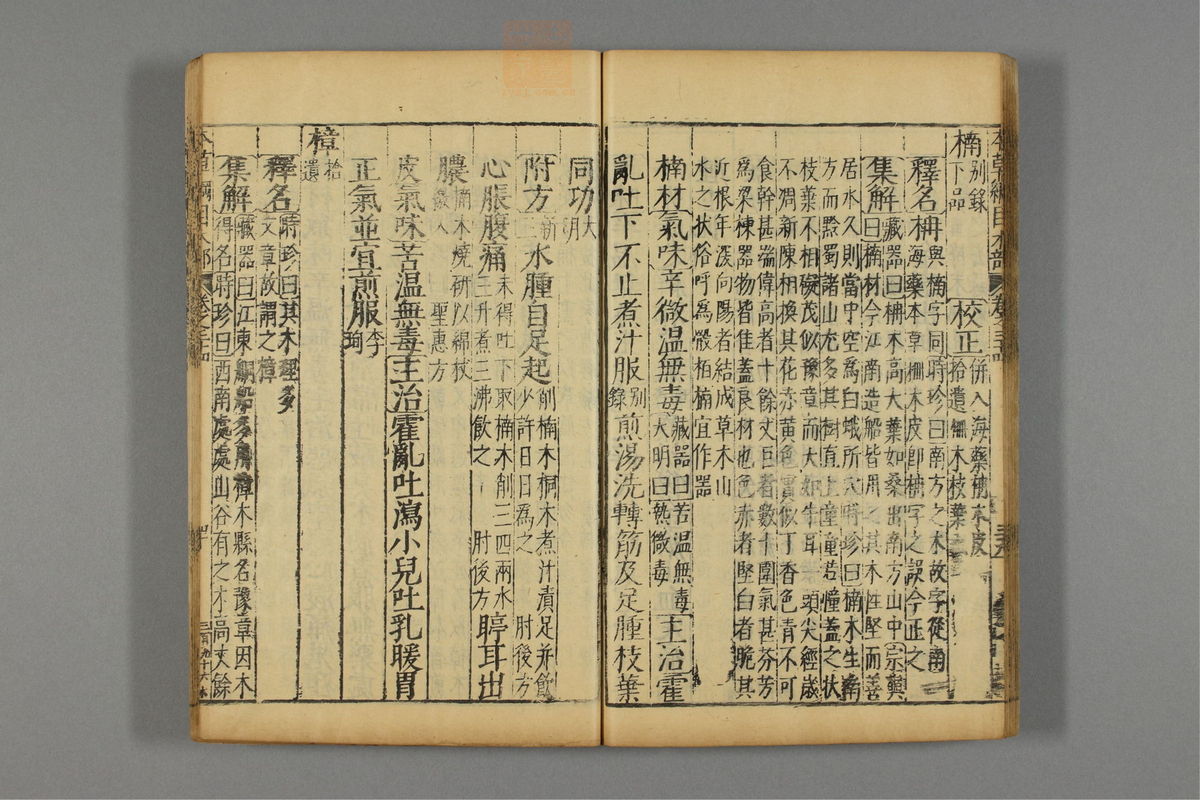 本草綱目木部 卷之三十四
楠別錄下品 校正併入海藥柟木皮拾遺柟木枝葉
釋名柟與楠字同時珍曰南方之木故字從南海藥本草柟木皮即楠字之誤今正之
集解藏器曰柟木高大葉如桑出南方山中宗奭曰楠材今江南造船皆用之其木性堅而善
居水久則當中空為白蟻所穴時珍曰楠木生南方而黔蜀諸山尤多其樹直上童童若幢蓋之狀
枝葉不相礙茂似豫章而大如牛耳一頭尖經歲不凋新陳相換其花赤黃色實似丁香色青不可
食幹甚端偉高者十餘丈巨者數十圍氣甚芬芳為梁棟器物皆佳蓋良材也色赤者堅白者脆其
近根年深向陽者結成草木山水之狀俗呼為骰柏楠宜作器
楠材氣味辛微溫無毒藏器曰苦溫無毒大明曰熱微毒主治霍
亂吐下不止煮汁服別錄煎湯洗轉筋及足腫枝葉
同功大明
附方新 水腫自足起削楠木桐木煮汁漬足并飲少許日日為之 肘後方
心脹腹痛未得吐下取楠木削三四兩水三升煮三沸飲之 肘後方 聤耳出
膿楠木燒研以綿杖繳入 聖惠方
皮氣味苦溫無毒主治霍亂吐瀉小兒吐乳暖胃
正氣並宜煎服李珣
樟拾遺
釋名時珍曰其木理多文章故謂之樟
集解藏器曰江東舸船多用樟木縣名豫章因木得名時珍曰西南處處山谷有之木高丈餘
本草綱目木部 卷之三十四 三百九十六